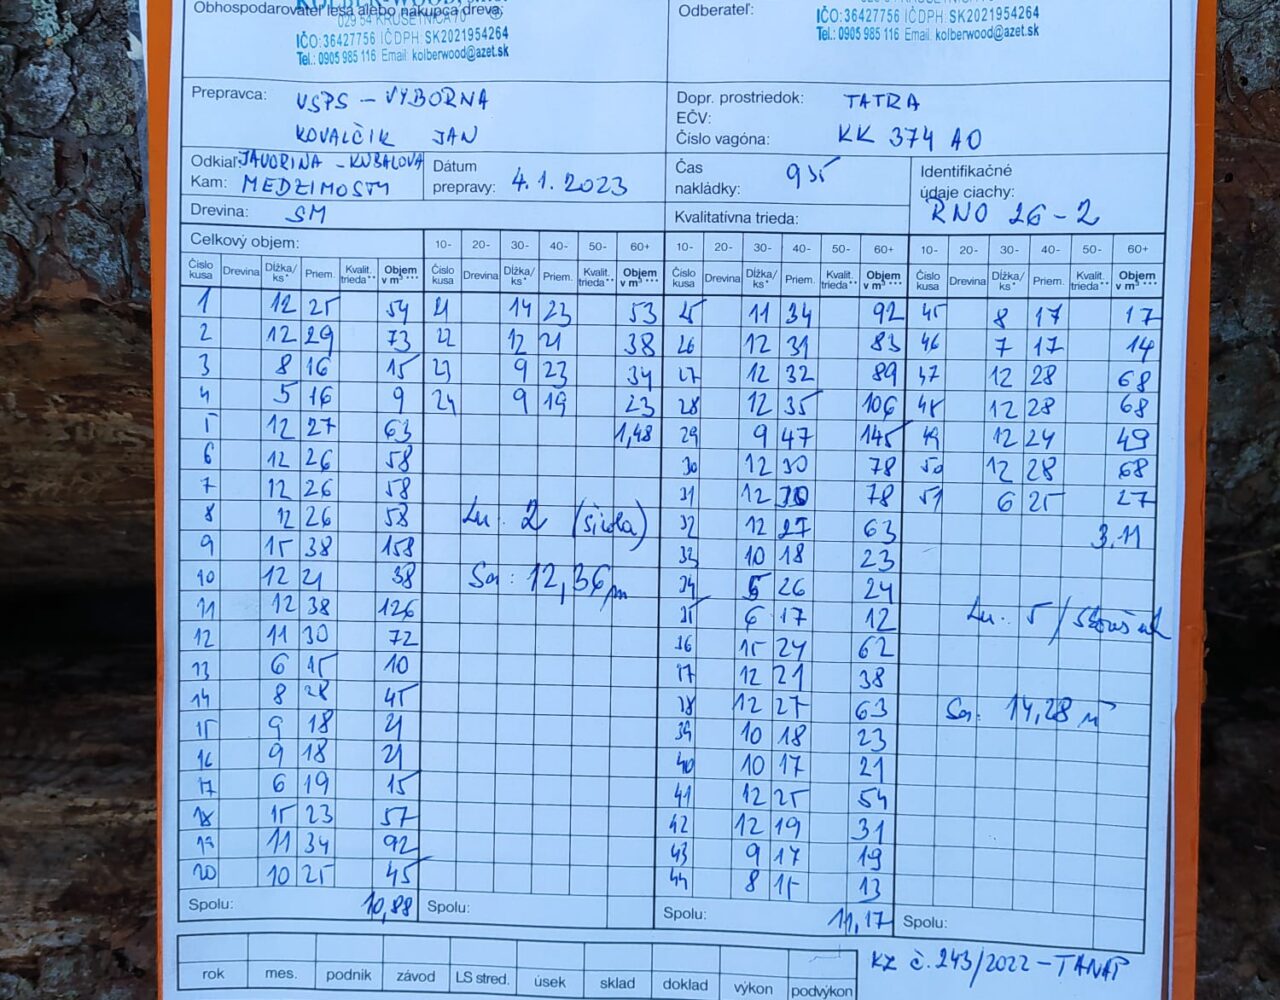 Obhospodarovateľ lesa alebo nákupca dreva:
029 54 KRUŠETNICA 70
IČO:36427756 IČDPH:SK2021954264
Tel.: 0905 985 116 Email: kolberwood@azet.sk
Odberateľ:
IČO:36427756 IČDPH:SK2021954264
Tel.: 0905 985 116 Email: kolberwood@azet.sk
Prepravca: VSPS - VÝBORNÁ
KOVALČIK JAN
Dopr. prostriedok: TATRA
EČV:
Číslo vagóna: KK 374 AO
Odkiaľ: JAVORINA - KUBALOVA
Kam: MEDZIMOSTY
Dátum prepravy: 4.1.2023
Čas nakládky: 9 35
Identifikačné údaje ciachy:
RNO 26-2
Drevina: SM
Kvalitatívna trieda:
Celkový objem: 10- 20- 30- 40- 50- 60+ 10- 20- 30- 40- 50- 60+ 10- 20- 30- 40- 50- 60+
Číslo kusa Drevina Dĺžka/ks* Priem. Kvalit. trieda** Objem v m³ Číslo kusa Drevina Dĺžka/ks* Priem. Kvalit. trieda** Objem v m³ Číslo kusa Drevina Dĺžka/ks* Priem. Kvalit. trieda** Objem v m³ Číslo kusa Drevina Dĺžka/ks* Priem. Kvalit. trieda** Objem v m³
1 12 25 54 21 14 23 53 25 11 34 92 45 8 17 17
2 12 29 73 22 12 21 38 26 12 31 83 46 7 17 14
3 8 16 15 23 9 23 34 27 12 32 89 47 12 28 68
4 5 16 9 24 9 19 23 28 12 35 106 48 12 28 68
5 12 27 63 1,48 29 9 47 145 49 12 24 49
6 12 26 58 30 12 30 78 50 12 28 68
7 12 26 58 31 12 30 78 51 6 25 27
8 12 26 58 2 32 12 27 63 3,11
9 15 38 158 33 10 18 23
10 12 21 38 12,36 m 34 26 24
11 12 38 126 35 6 17 12 5
12 11 30 72 36 15 24 62
13 6 15 10 37 12 21 38
14 8 28 45 38 12 27 63 14,28 m
15 9 18 21 39 10 18 23
16 9 18 21 40 10 17 21
17 6 19 15 41 12 25 54
18 15 23 57 42 12 19 31
19 11 34 92 43 9 17 19
20 10 25 45 44 8 15 13
Spolu: 10,88 Spolu: Spolu: 11,17 Spolu:
KZ č. 243/2022 - TANAP
rok mes. podnik závod LS stred. úsek sklad doklad výkon podvýkon